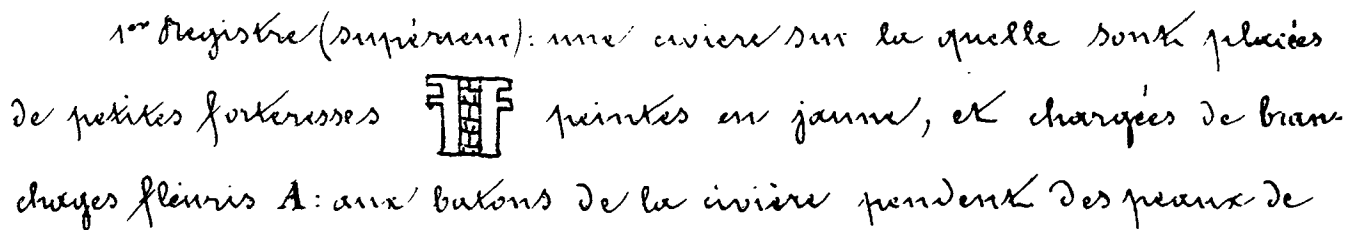 1er Registre (supérieur): une civiere sur la quelle sont placées
de petites forteresses peintes en jaune, et chargées de bran-
chages fleuris A: aux batons de la civière pendent des peaux de